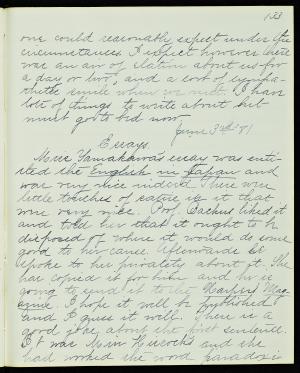 133
one could reasonably expect under the
circumstances. I expect however there
was an air of elation about us for
a day or two, and a sort of sympa-
thetic smile when we met. I have
lots of things to write about but
must go to bed now.
June 3rd '81
Essays.
Miss Yamakawa's essay was enti-
tled the English in Japan and
was very nice indeed. There were
little touches of satire in it that
were very nice. Prof. Backus liked it
and told her that it ought to be
disposed of where it would do some
good to her cause. Blennard so
spoke to her privately about it. She
has copied it for him and he is
going to send it to the Harpers Mag-
azine. I hope it will be published
and I guess it will. There is a
good joke about the first sentence.
It was Miss Hiscock's and she
had worked the word paradox in